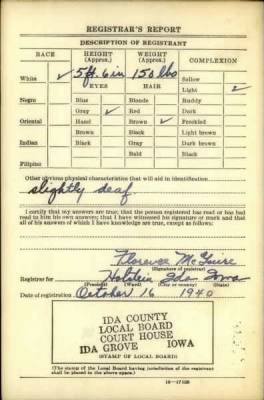 REGISTRAR'S REPORT
DESCRIPTION OF REGISTRANT
RACE HEIGHT (Approx.) WEIGHT (Approx.) COMPLEXION
White ✓ 5 ft. 6 in 150 lbs Sallow
EYES HAIR Light ✓
Negro Blue Blonde Ruddy
Gray ✓ Red Dark
Oriental Hazel Brown ✓ Freckled
Brown Black Light brown
Indian Black Gray Dark brown
Bald Black
Filipino
Other obvious physical characteristics that will aid in identification
slightly deaf
I certify that my answers are true; that the person registered has read or has had
read to him his own answers; that I have witnessed his signature or mark and that
all of his answers of which I have knowledge are true, except as follows:
Florence McGuire
(Signature of registrar)
Registrar for Holstein Ida Iowa
(Precinct) (Ward) (City or county)
Date of registration October 16 1940
IDA COUNTY
LOCAL BOARD
COURT HOUSE
IDA GROVE IOWA
(STAMP OF LOCAL BOARD)
(The stamp of the Local Board having jurisdiction of the registrant
shall be placed in the above space.)